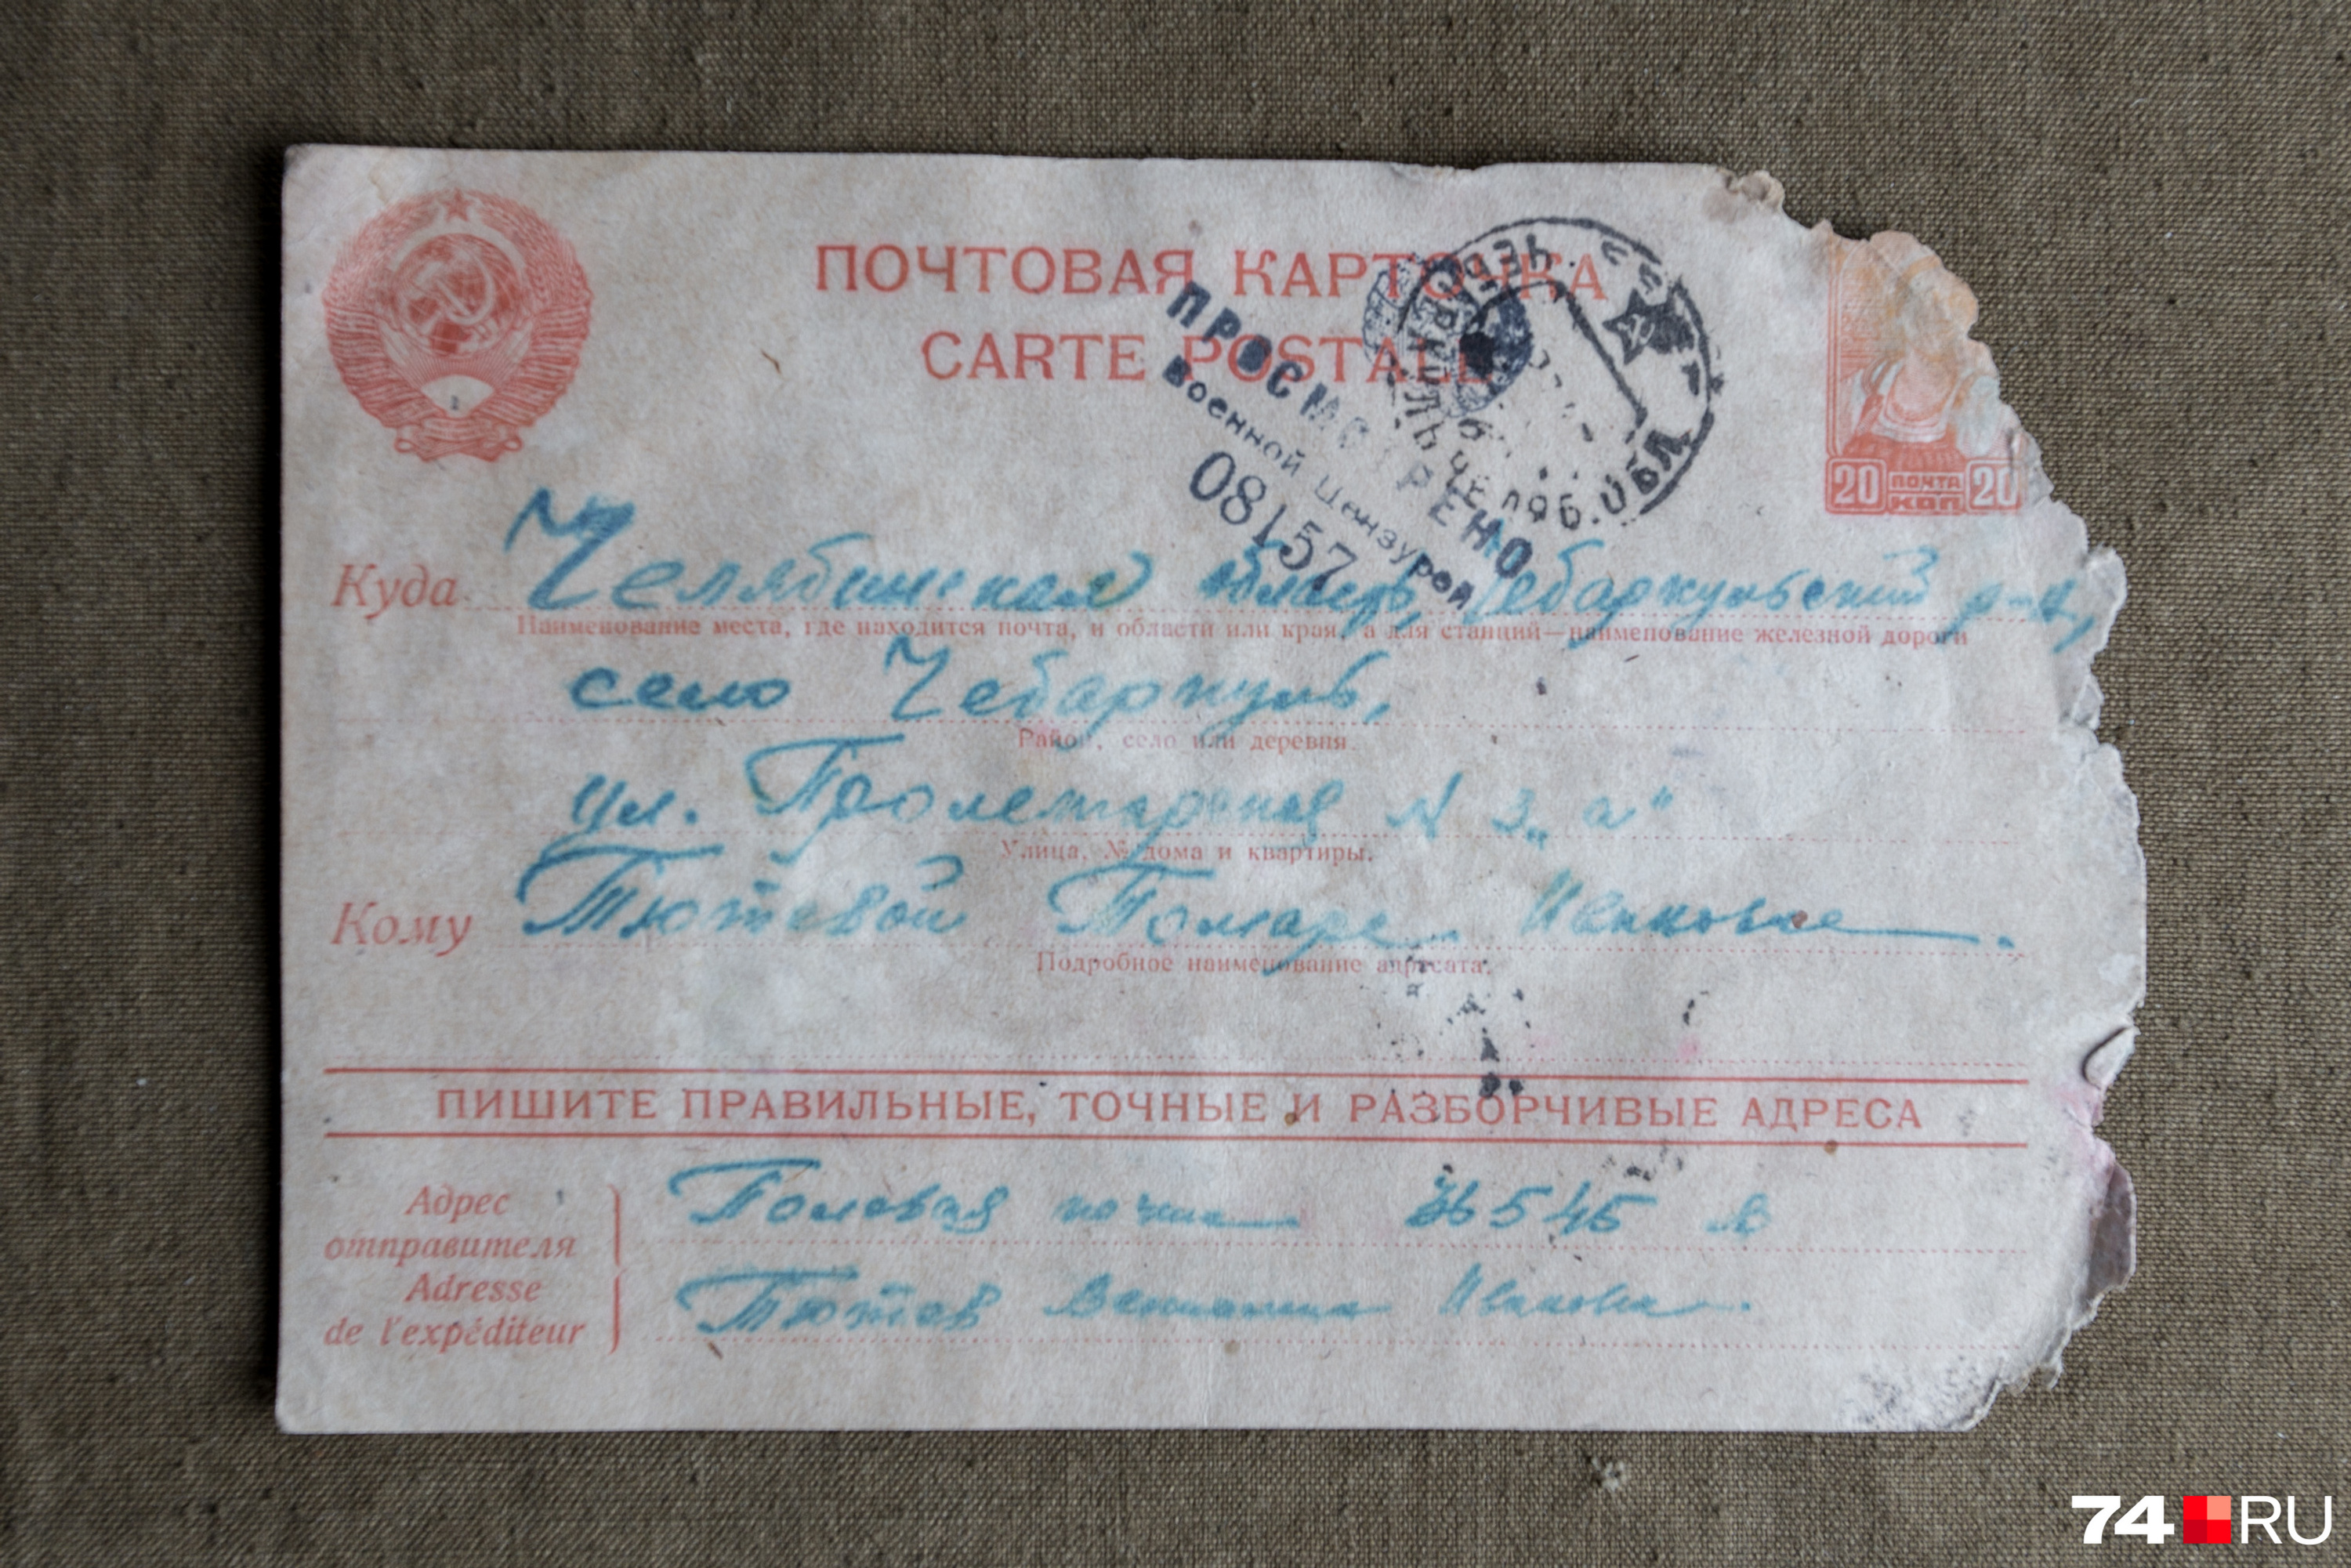 ПОЧТОВАЯ КАРТОЧКА
CARTE POSTALE
ПРОСМОТРЕНО
Военной Цензурой
08157
ЧЕБАРКУЛЬ ЧЕЛЯБ. ОБЛ
20 ПОЧТА 20
КОП
Куда Челябинская область, Чебаркульский р-н,
Наименование места, где находится почта, и области или края, а для станций—наименование железной дороги
село Чебаркуль,
Район, село или деревня.
ул. Пролетарская № 3 „а"
Улица, № дома и квартиры.
Кому Тютевой Тамаре Ивановне.
Подробное наименование адресата.
ПИШИТЕ ПРАВИЛЬНЫЕ, ТОЧНЫЕ И РАЗБОРЧИВЫЕ АДРЕСА
Адрес отправителя
Adresse de l'expéditeur
Полевая почта 36545 В
Тютев Вениамин Иванович.
74 RU